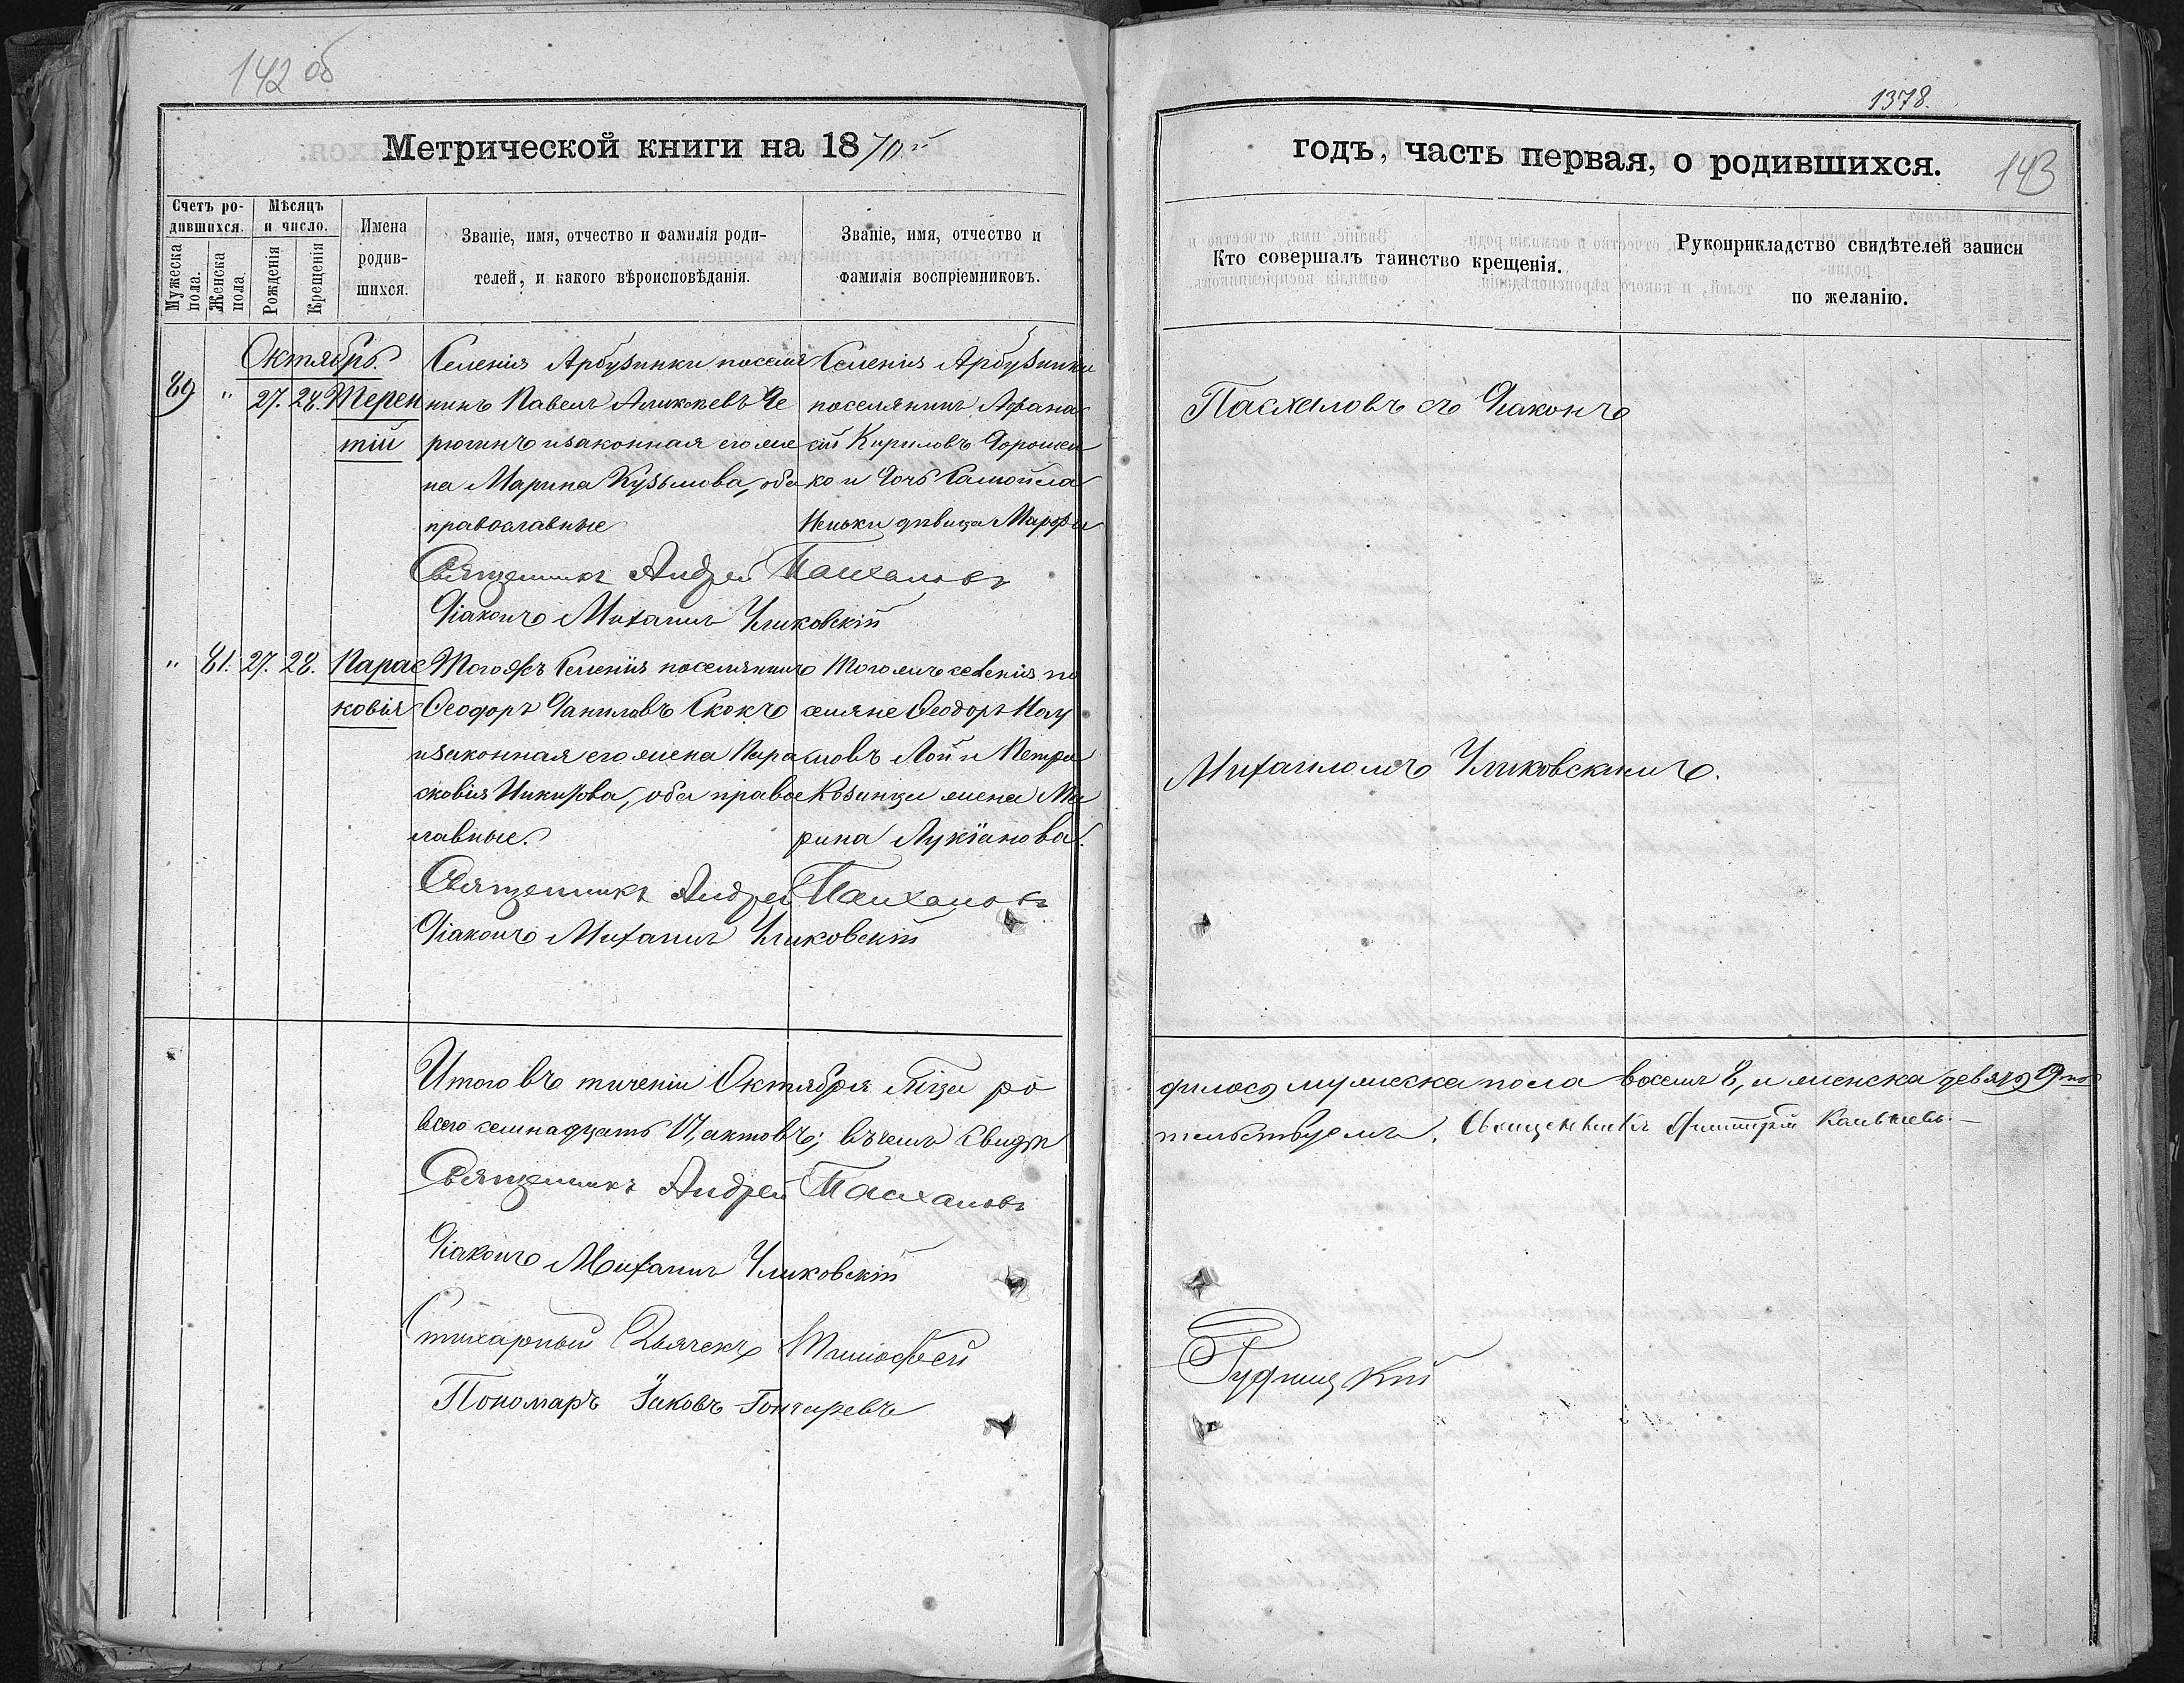 142 об
Метрической книги на 1870й
Счетъ ро-
дившихся.
Мужеска пола.
Женска пола
Мѣсяцъ
и число.
Рожденія
Крещенія
Имена
родив-
шихся.
Званіе, имя, отчество и фамилія роди-
телей, и какого вѣроисповѣданія.
Званіе, имя, отчество и
фамилія воспріемниковъ.
Октябрь.
89 " 27. 28. Терен
тій
Селенія Арбузинки поселя
нинъ Павелъ Аликіевъ Че
рюгинъ изаконная его же
на Марина Кузьмова, оба
православные
Селенія Арбузинки
поселянинъ Афана
сій Кириловъ Дорошен
ко и дочь Самойла
дѣвица Марфа
Священникъ Андрей Пасхаловъ
Діаконъ Михаилъ Уликовскій
" 81. 27. 28. Парас
ковія
Тогожъ Селенія поселянинъ
Ѳеодоръ Даниловъ Скокъ
изаконная его жена Пара
сковія Никифова, оба правос
лавные.
Того жъ селенія по
селяне Ѳеодоръ Нау
мовъ Лой и Петра
Козинца жена Ма
рина Лукіанова.
Священникъ Андрей Пасхаловъ
Діаконъ Михаилъ Уликовскій
Итого въ теченіи Октября м҃ца ро
всего семнадцать 17, актовъ; въ чемъ свидѣ
Священникъ Андрей Пасхаловъ
Діаконъ Михаилъ Уликовскій
Стихарный Дьячекъ Тимофей
Пономарь Іаковъ Гончаревъ
1378.
годъ, часть первая, о родившихся.
143
Кто совершалъ таинство крещенія.
Рукоприкладство свидѣтелей записи
по желанію.
Пасхаловъ съ Діаконъ
Михаиломъ Уликовскимъ.
дилось мужеска пола восемь 8, и женска девять 9
тельствуемъ. Священникъ Димитрій
Гудницкій